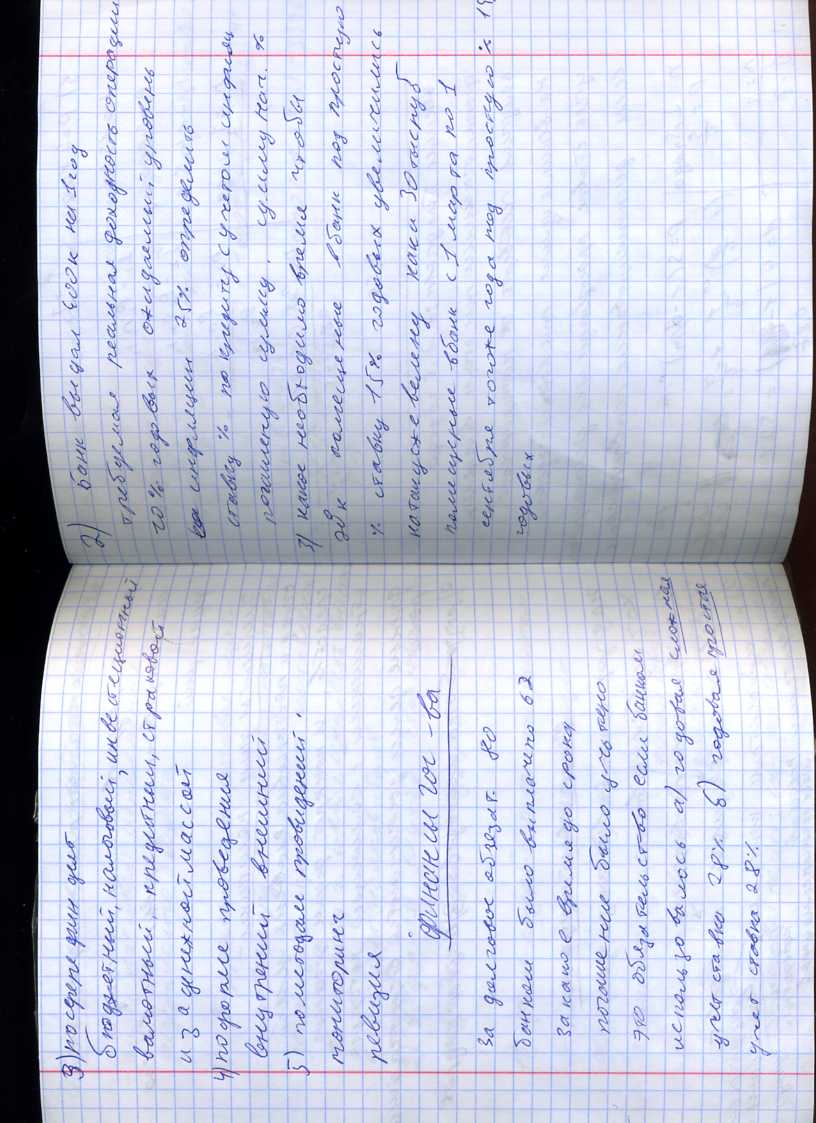 3) по сфере фин деят
бюджетный, налоговый, инвестиционный
валютный, кредитный, страховой
и за денежной массой
4) по форме проведения
внутрений внешний
5) по методам провидений.
мониторинг
ревизия
Финансы гос-ва
За долговое обязат. 80
банком было выплачено 62
За какое время до срока
погашение было учтено
это обязательство если банком
использовалось а) годовая сложная
учет ставка 28% б) годовая простая
учет ставка 28%
2) Банк выдал 600к на 1 год
требуемая реальная доходность операции
10% годовых ожидаемый уровень
инфляции 25% определить
ставку % по кредиту с учетом инфляц
погашеную сумму. сумму нач. %
3) какое необходимо время чтобы
20к помещеные в банк под простую
% ставку 15% годовых увеличились
на такуюже велену как и 30 тыс руб
помещеные в банк с 1 марта по 1
сентября тогоже года под простую %
годовых